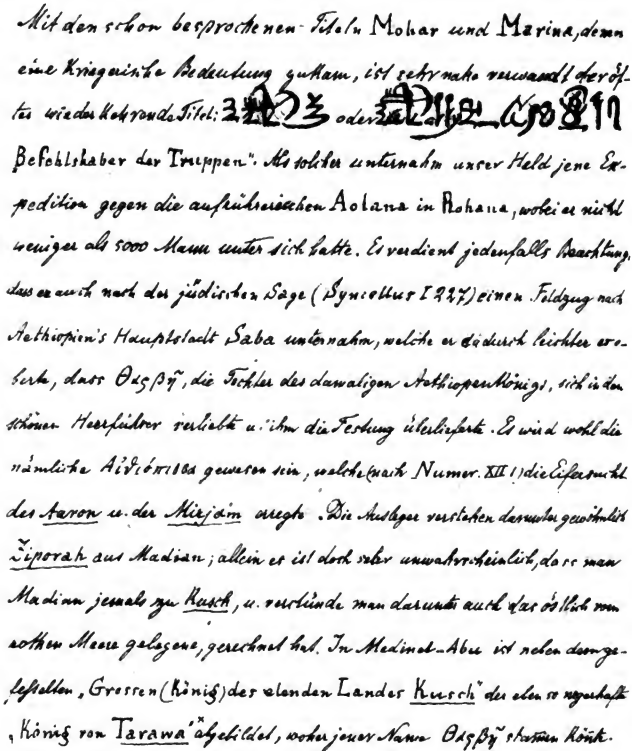 Mit den schon besprochenen Titeln Mohar und Marina, denen
eine Kriegerische Bedeutung zukam, ist sehr nahe verwandt der öf-
tes wiederkehrende Titel: oder
Befehlshaber der Truppen". Als solcher unternahm unser Held jene Ex-
pedition gegen die aufrührerischen Aolana in Rohana, wobei er nicht
weniger als 5000 Mann unter sich hatte. Es verdient jedenfalls Beachtung,
dass er auch nach der jüdischen Sage (Syncellus I 227) einen Feldzug nach
Aethiopien's Hauptstadt Saba unternahm, welche er dadurch leichter ero-
berte, dass Θαρβη̃, die Tochter des damaligen Aethiopenkönigs, sich in den
schönen Heerführer verliebte u. ihm die Festung überlieferte. Es wird wohl die
nämliche Αἰθιόπισσα gewesen sein, welche (nach Numer. XII 1) die Eifersucht
des Aaron u. der Mirjam erregte. Die Ausleger verstehen darunter gewöhnlich
Ziporah aus Madian; allein es ist doch sehr unwahrscheinlich, dass man
Madian jemals zu Kusch, u. verstünde man darunter auch das östlich vom
rothen Meere gelegene, gerechnet hat. In Medinet-Abu ist neben dem ge-
fesselten „Grossen (König) des elenden Landes Kusch" der eben so negerhafte
„König von Tarawa" abgebildet, woher jener Name Θαρβη̃ stammen könnte.